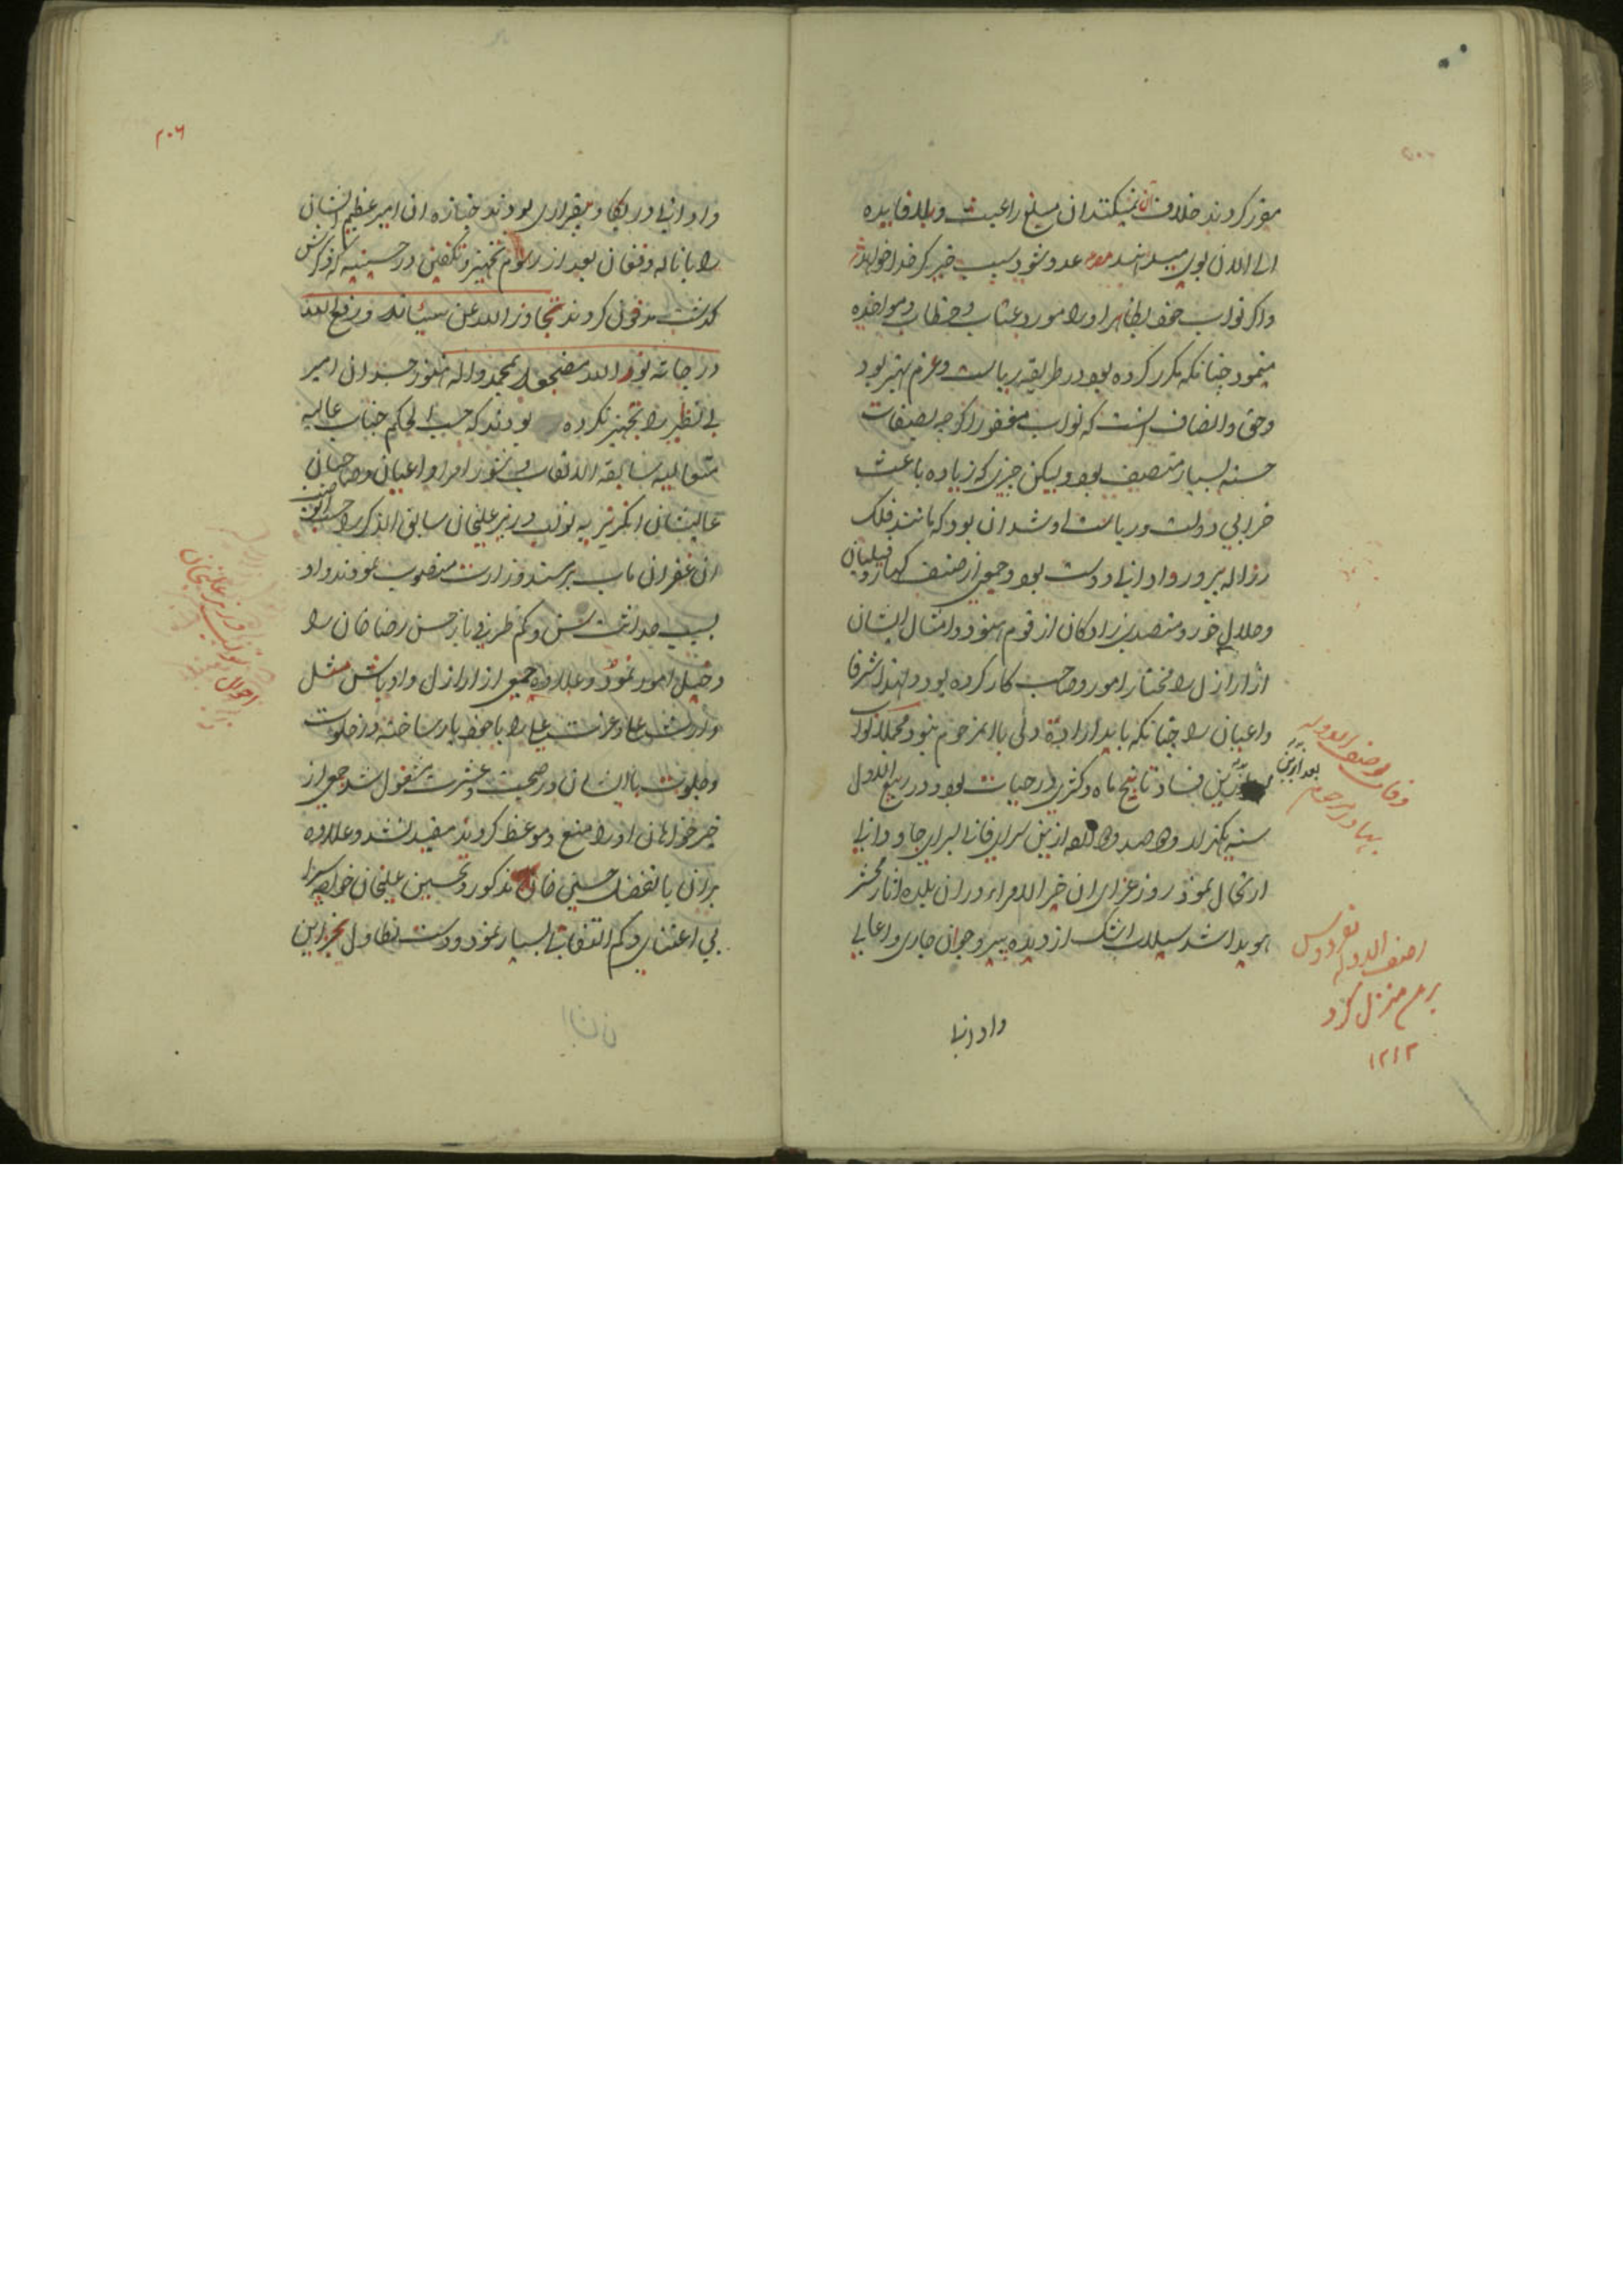 مقرر کردند خلاف آن نمیکنند ان مبلغ را عبث و بلافایده
الی الان بوی میدهند عدو شود سبب خیر گر خدا خواهد
و اگر نواب خود بظاهر او را مورد عتاب و خطاب و مواخذه
مینمود چنانکه مکرر کرده بود در طریقه ریاست و عزم بهتر بود
و حق و انصاف اینست که نواب مغفور اگرچه بصفات
حسنه بسیار متصف بود و لیکن چیزی که زیاده باعث
خرابی دولت و ریاست او شد ان بود که مانند فلک
رذاله پرور و ادانی دوست بود و جمعی از صنف کهار و فیلبان
و حلال خور و متصدی زادگان از قوم هنود و امثال ایشان
از اراذل را مختار امور و صاحب کار کرده بود و لهذا اشرفا
و اعیان را چنانکه باید ارادهٔ دلی با ان مرحوم نبود مجملا نواب
بعد ازین فساد تا پنج ماه و کسری در حیات بود و در ربیع الاول
سنه یکهزار و دو صد و دوازده ازین سرای فانی بسرای جاودانی
ارتحال نمود روز عزای ان خیر الامرا در ان بلده اثار محشر
هویدا شد سیلاب اشک از دیده پیر و جوان جاری و اعالی
و ادانی
وفات اصف الدوله
بهادر مرحوم
بعد ازین
اصف الدوله بفردوس
برین منزل کرد
۱۲۱۲
۲۰۶
و ادانی در بکا و بیقراری بودند جنازه ان امیر عظیم الشان
را با ناله و فغان بعد از رسوم تجهیز و تکفین در حسینیه که ذکرش
گذشت مدفون کردند تجاوز الله عن سیئاته و رفع الله
درجاته نور الله مضجعه بمحمد و اله هنوز جسد ان امیر
بی نظیر را تجهیز نکرده بودند که حسب الحکم جناب عالیه
متعالیه سابقة الالقاب و بشور امرا و اعیان و صاحبان
عالیشان انگریزیه نواب وزیر علیخان سابق الذکر را
ان غفران ماب بر مسند وزارت منصوب نمودند و او
بسبب حداثت سن و کم ظرفی باز حسن رضا خان را
دخیل امور نمود و علاوه جمعی از اراذل و اوباش مثل
وارث علی و عزت علی را با خود یار ساخته در خلوت
و جلوت با ایشان در صحبت و عشرت مشغول شد جمعی از
خیر خواهان او را منع و موعظه کردند مفید نشد و علاوه
بر ان با تفضل حسین خان مذکور و تحسین علیخان خواجه سرا
بی اعتنایی و کم التفاتی بسیار نمود و دست تطاول بخزاین
احوال نواب وزیر علیخان